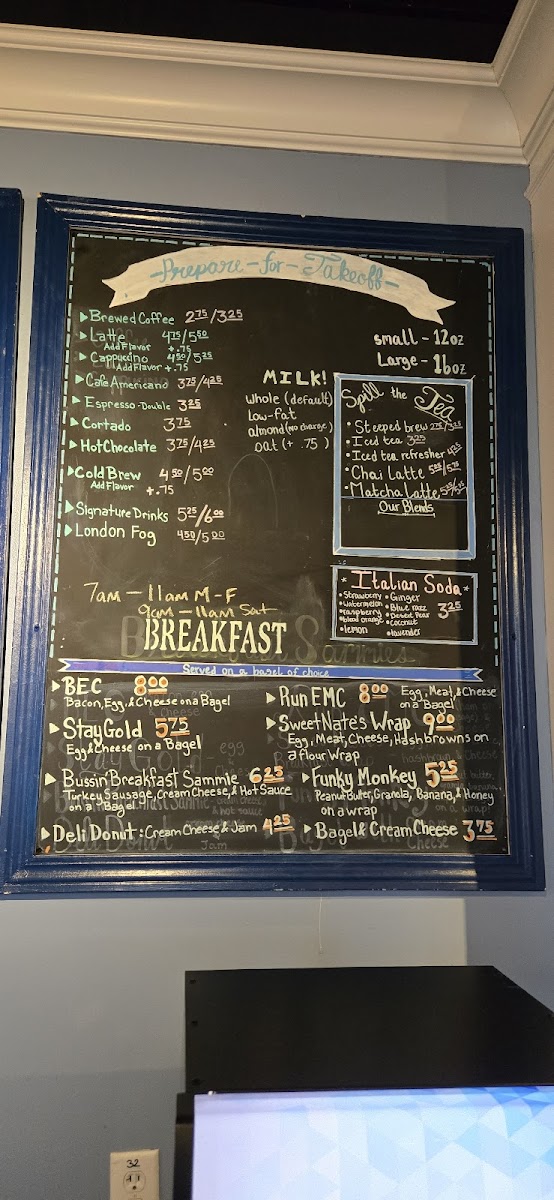 Prepare-for-Takeoff-
Brewed Coffee 2.75/3.25
Latte 4.75/5.50
Add Flavor +.75
Cappucino 4.50/5.25
Add Flavor +.75
Cafe Americano 3.75/4.25
Espresso-Double 3.25
Cortado 3.75
Hot Chocolate 3.75/4.25
Cold Brew 4.50/5.00
Add Flavor +.75
Signature Drinks 5.25/6.00
London Fog 4.50/5.00
small - 12oz
Large - 16oz
MILK!
whole (default)
low-fat
almond (no charge)
oat (+ .75)
Spill the Tea
Steeped brew 2.75/3.25
Iced tea 3.25
Iced tea refresher 4.25
Chai Latte 5.25/5.75
Matcha Latte
Our Blends
Italian Soda
Strawberry
Watermelon
raspberry
blood orange
lemon
Ginger
Blue razz
Desert Pear
coconut
lavender
3.25
7am - 11am M-F
9am - 11am Sat
BREAKFAST
Sammies
Served on a bagel of choice
BEC 8.00
Bacon, Egg, & Cheese on a Bagel
Stay Gold 5.75
Egg & Cheese on a Bagel
Bussin' Breakfast Sammie 6.25
Turkey Sausage, Cream Cheese, & Hot Sauce
on a Bagel
Deli Donut: Cream Cheese & Jam 4.25
Run EMC 8.00 Egg, Meat, & Cheese
on a Bagel
Sweet Nate's Wrap 9.00
Egg, Meat, Cheese, Hashbrowns on
a flour Wrap
Funky Monkey 5.25
Peanut Butter, Granola, Banana, & Honey
on a wrap
Bagel & Cream Cheese 3.75
32